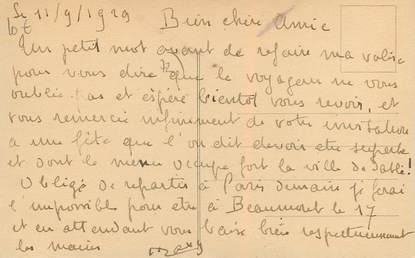 Le 11/9/1929 Bien chère Amie
Un petit mot avant de refaire ma valise
pour vous dire que le voyageur ne vous
oublie pas et espère bientôt vous revoir, et
vous remercie infiniment de votre invitation
a une fête que l'on dit devoir être superbe
et dont le menu occupe fort la ville de Sablé!
Obligé de repartir à Paris demain je ferai
l'impossible pour être à Beaumont le 17
et en attendant vous baise bien respectueusement
les mains